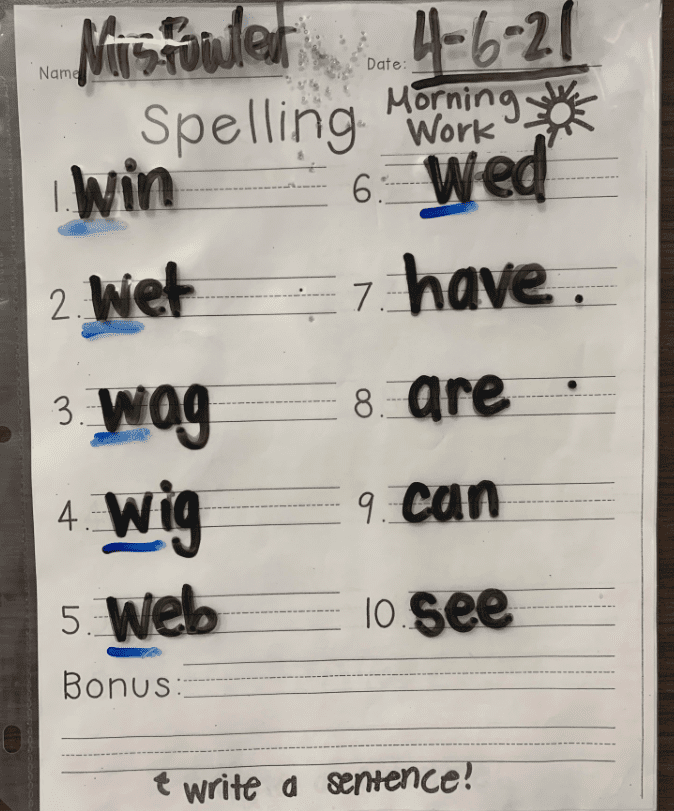 Name Mrs. Fowler Date: 4-6-21
Spelling Morning Work
1. win
2. wet
3. wag
4. wig
5. web
6. wed
7. have
8. are
9. can
10. see
Bonus:
& write a sentence!